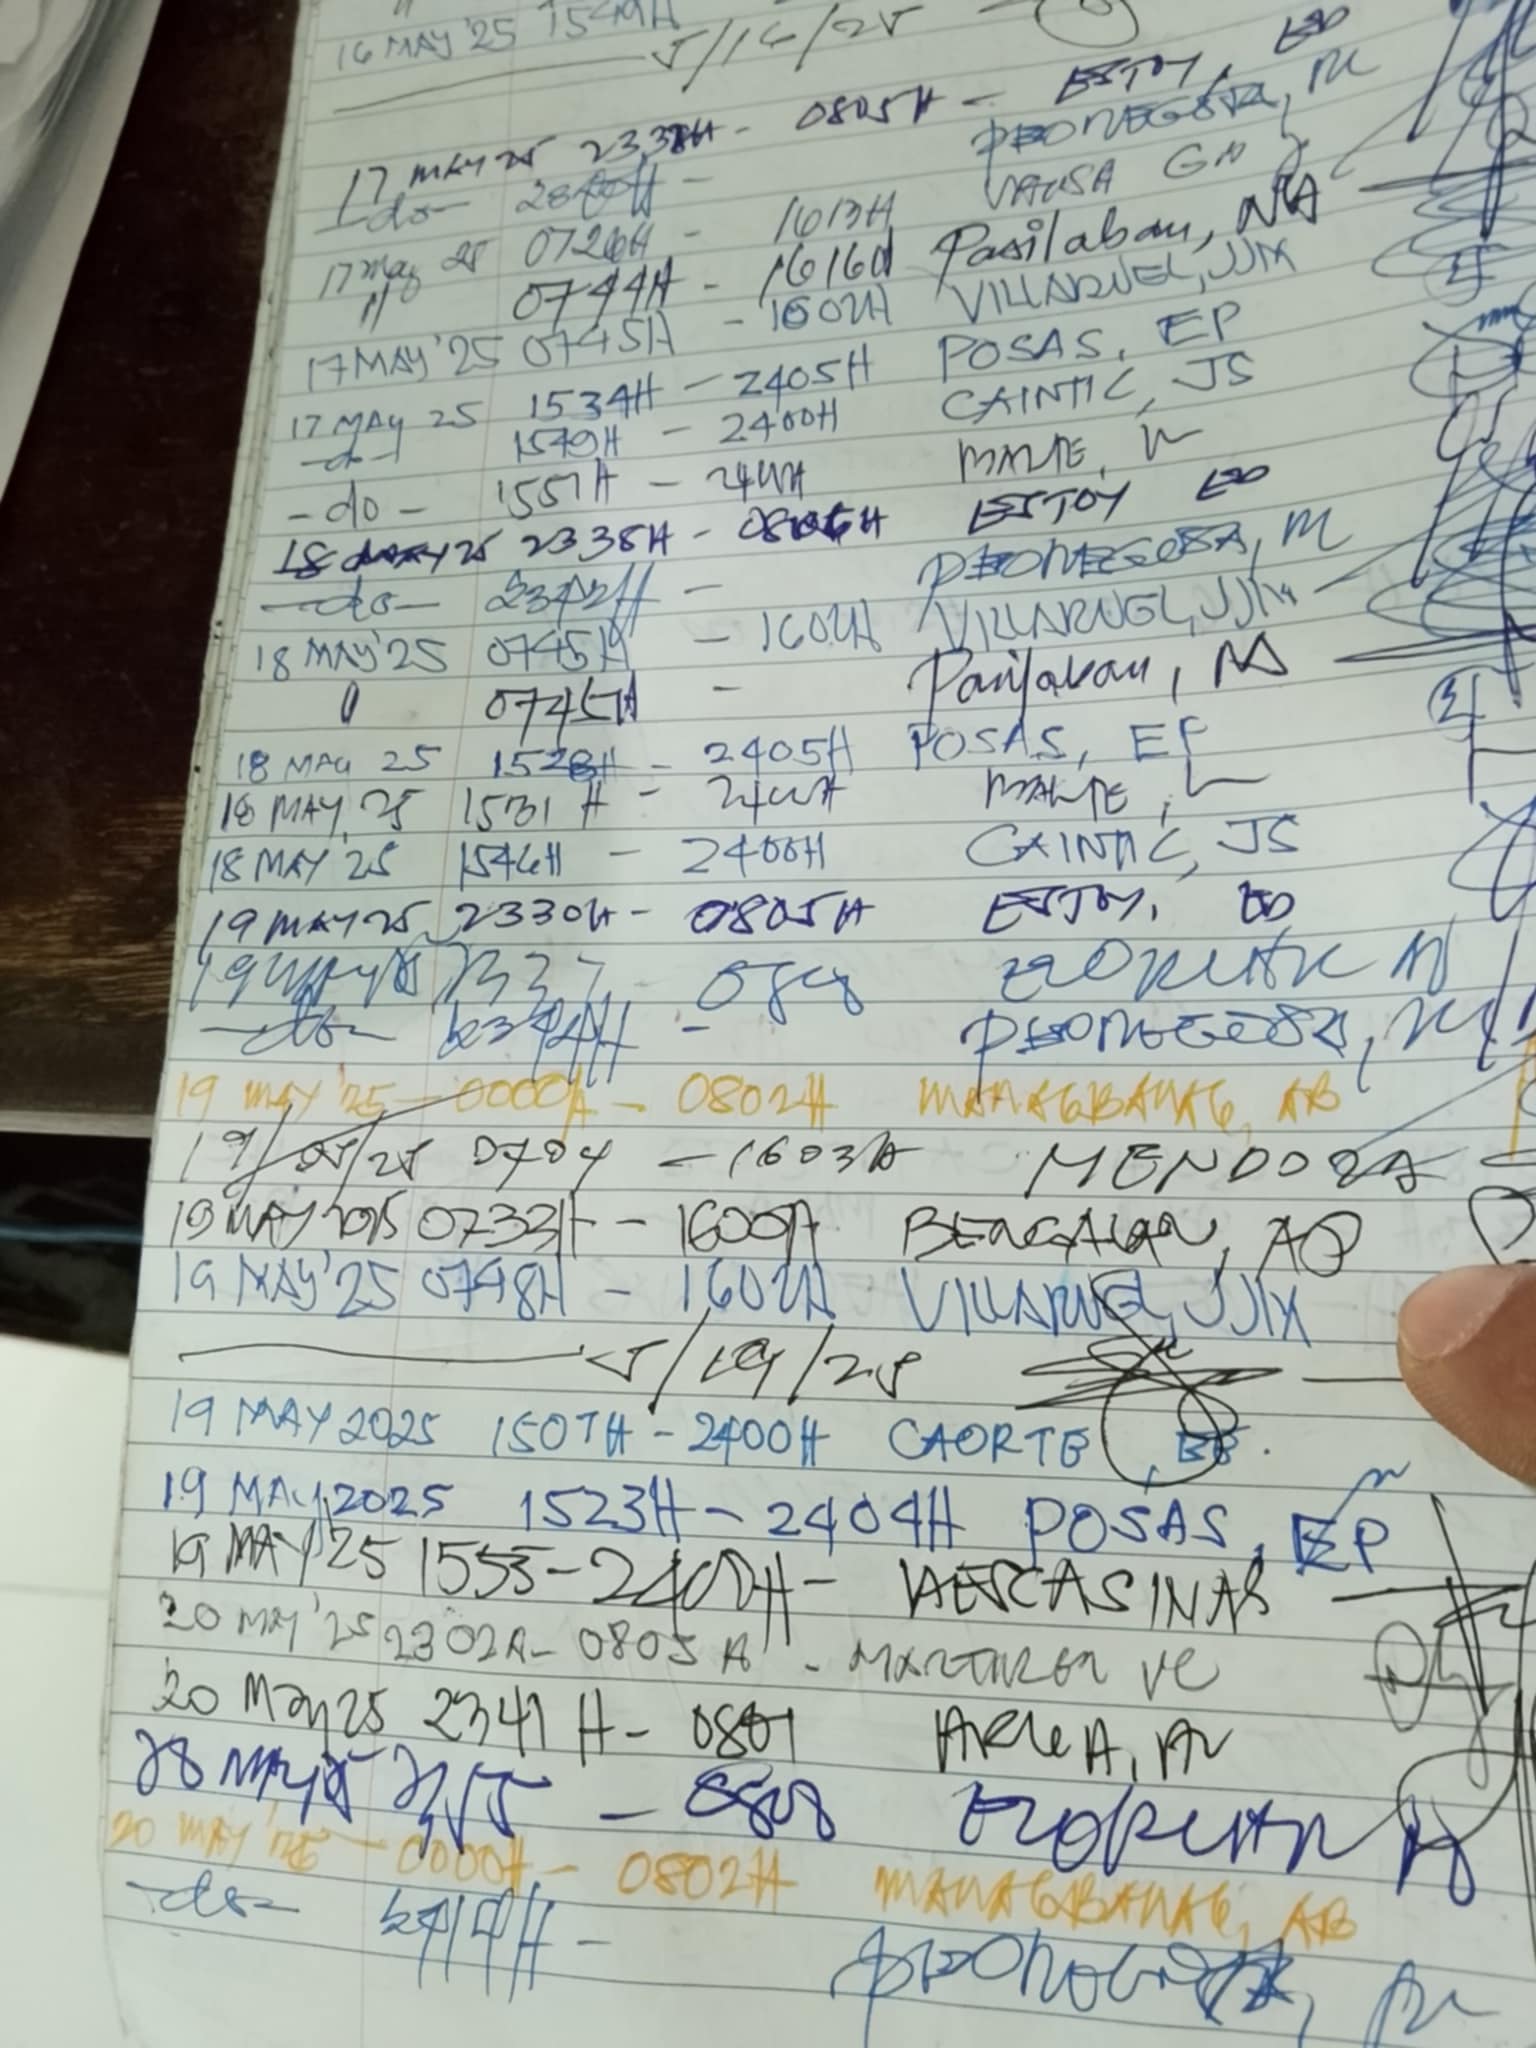 16 MAY '25 1549H
5/16/25
17 MAY 25 2338H - 0805H - ESTOY, ED
-do- - DEONEGOSA, M
17 May 25 0726H - 1613H VALISA GN
" 0744H - 1616H Pasilaban, NA
17 MAY '25 0745H - 1602H VILLARUEL, JJIX
17 MAY 25 1534H - 2405H POSAS, EP
-do- 1549H - 2400H CAINTIC, JS
-do- 1557H - 2400H MALTE, L
18 MAY 25 2338H - 0805H ESTOY ED
-do- 2342H - DEONEGOSA, M
18 MAY '25 0745H - 1602H VILLARUEL, JJIX
" 0745H - Pasilaban, NA
18 MAY 25 1528H - 2405H POSAS, EP
18 MAY, 25 1531H - 2400H MALTE, L
18 MAY '25 1546H - 2400H CAINTIC, JS
19 MAY 25 2330H - 0805H ESTOY, ED
19 MAY 25 2337 -
-do- 2344H - DEONEGOSA, M
19 MAY '25 - 0000H - 0802H MANAGBANAG, AB
19/05/25 0704 - 1603H MENDOZA
19 MAY 2025 0733H - 1600H BENGALAN, AO
19 MAY '25 0748H - 1602H VILLARUEL, JJIX
5/19/25
19 MAY 2025 1507H - 2400H CAORTE, BB.
19 MAY 2025 1523H - 2404H POSAS, EP
19 MAY '25 1555 - 2400H - VERCASINAS
20 MAY '25 2302H - 0805H - MARTINEZ VC
20 May 25 2341H - 0801 ARCEA, AV
MAY 25 2355 -
20 MAY '25 - 0000H - 0802H MANAGBANAG, AB
-do- - DEONEGOSA, M